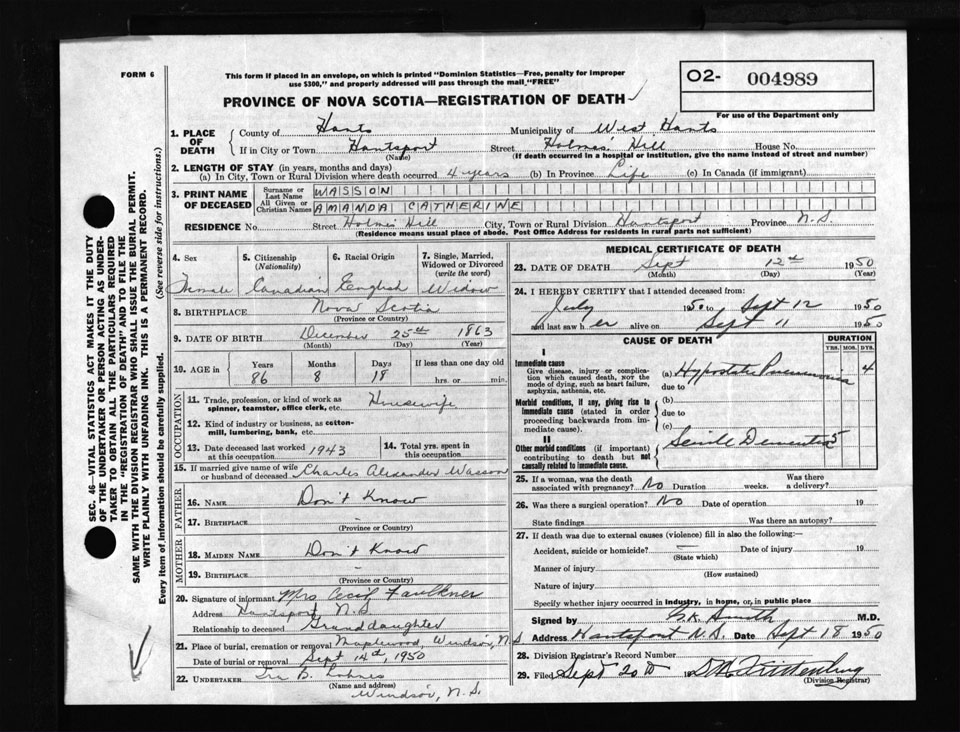 FORM 6
This form if placed in an envelope, on which is printed "Dominion Statistics—Free, penalty for improper
use $300," and properly addressed will pass through the mail "FREE"
O2- 004989
For use of the Department only
PROVINCE OF NOVA SCOTIA—REGISTRATION OF DEATH
1. PLACE OF DEATH
County of Hants Municipality of West Hants
If in City or Town Hantsport Street Holmes Hill House No.
(Name) (If death occurred in a hospital or institution, give the name instead of street and number)
2. LENGTH OF STAY (in years, months and days)
(a) In City, Town or Rural Division where death occurred 4 years (b) In Province Life (c) In Canada (if immigrant)
3. PRINT NAME OF DECEASED
Surname or Last Name WASSON
All Given or Christian Names AMANDA CATHERINE
RESIDENCE No. Street Holmes Hill City, Town or Rural Division Hantsport Province N.S.
(Residence means usual place of abode. Post Office Address for residents in rural parts not sufficient)
4. Sex Female
5. Citizenship (Nationality) Canadian
6. Racial Origin English
7. Single, Married, Widowed or Divorced (write the word) Widow
8. BIRTHPLACE Nova Scotia
(Province or Country)
9. DATE OF BIRTH December 25th 1863
(Month) (Day) (Year)
10. AGE in Years 86 Months 8 Days 18 If less than one day old
hrs. or min.
OCCUPATION
11. Trade, profession, or kind of work as spinner, teamster, office clerk, etc. Housewife
12. Kind of industry or business, as cotton-mill, lumbering, bank, etc.
13. Date deceased last worked at this occupation 1943
14. Total yrs. spent in this occupation
15. If married give name of wife or husband of deceased Charles Alexander Wasson
FATHER
16. NAME Don't Know
17. BIRTHPLACE –
(Province or Country)
MOTHER
18. MAIDEN NAME Don't Know
19. BIRTHPLACE –
(Province or Country)
20. Signature of informant Mrs Cecil Faulkner
Address Hantsport N.S
Relationship to deceased Granddaughter
21. Place of burial, cremation or removal Maplewood, Windsor, N.S
Date of burial or removal Sept 14th, 1950
22. UNDERTAKER Ira B.
(Name and address)
Windsor, N.S.
MEDICAL CERTIFICATE OF DEATH
23. DATE OF DEATH Sept 12th 1950
(Month) (Day) (Year)
24. I HEREBY CERTIFY that I attended deceased from:
July 1950 to Sept 12 1950
and last saw h er alive on Sept 11 1950
CAUSE OF DEATH
DURATION
YRS. MOS. DYS.
I
Immediate cause
Give disease, injury or complication which caused death, NOT the mode of dying, such as heart failure, asphyxia, asthenia, etc.
(a) Hypostatic Pneumonia 4
due to
Morbid conditions, if any, giving rise to immediate cause (stated in order proceeding backwards from immediate cause).
(b)
due to
(c)
II
Other morbid conditions (if important) contributing to death but not causally related to immediate cause.
Senile Dementia 5
25. If a woman, was the death associated with pregnancy? No Duration weeks. Was there a delivery?
26. Was there a surgical operation? No Date of operation 19
State findings Was there an autopsy?
27. If death was due to external causes (violence) fill in also the following:—
Accident, suicide or homicide? — Date of injury 19
(State which)
Manner of injury
(How sustained)
Nature of injury
Specify whether injury occurred in industry, in home, or, in public place
Signed by G.K. Smith M.D.
Address Hantsport N.S. Date Sept 18 1950
28. Division Registrar's Record Number
29. Filed Sept 20th 19
(Division Registrar)
SEC. 46 VITAL STATISTICS ACT MAKES IT THE DUTY
OF THE UNDERTAKER OR PERSON ACTING AS UNDERTAKER
TO OBTAIN ALL THE PARTICULARS REQUIRED
IN THE "REGISTRATION OF DEATH" AND TO FILE THE
SAME WITH THE DIVISION REGISTRAR WHO SHALL ISSUE THE BURIAL PERMIT.
WRITE PLAINLY WITH UNFADING INK. THIS IS A PERMANENT RECORD.
Every item of information should be carefully supplied. (See reverse side for instructions.)